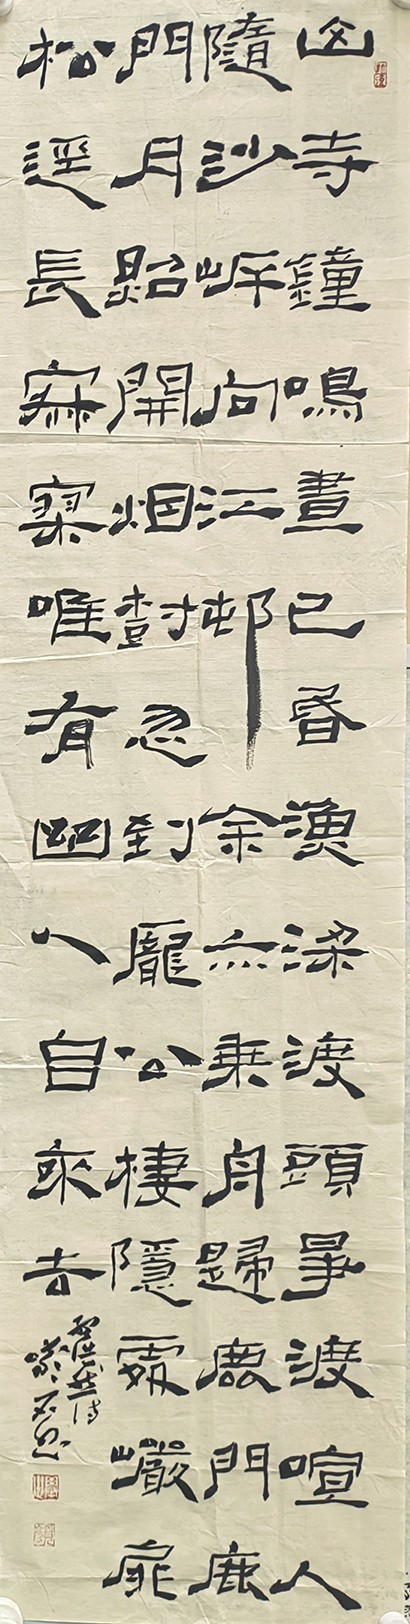 山寺鐘鳴晝已昏漁梁渡頭爭渡喧人
隨沙岸向江邨余亦乘舟歸鹿門鹿
門月照開烟樹忽到龐公棲隱處巖扉
松逕長寂寞唯有幽人自來去
孟浩然詩